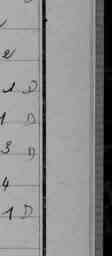 2
1 D
1 D
3 D
4
1 D